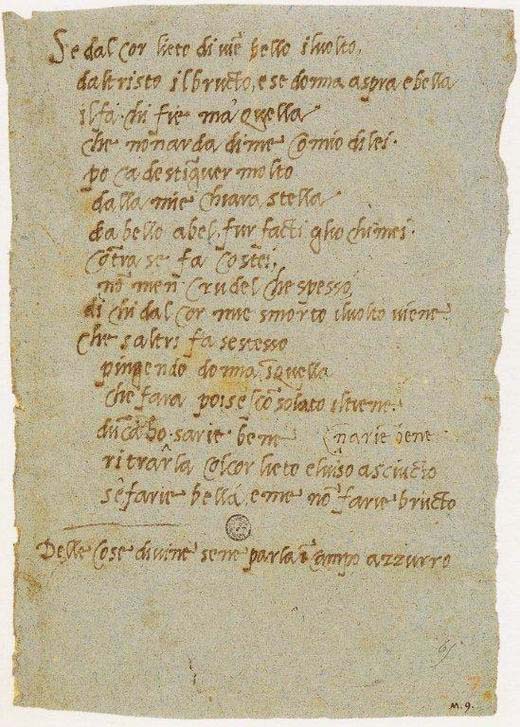 Se dal cor lieto diuiē bello iluolto,
dal tristo ilbructo, e se donna aspra e bella
ilfa· chi fie ma' quella
che nonarda dime Comio dilei·
po ca destīguer molto
dalla mie Chiara stella
da bello abel· fur facti glio chimei·
Cōtra se fa Costei,
nō men Crudel che spesso,
di chi dal cor mie smorto iluolto uiene
che saltri fa sestesso
pingendo donna īquella
che fara poi se scōsolato iltiene·
sarie bene narie bene
ritrarla Colcor lieto eluiso asciucto
se farie bella, e me nō farie bructo
Delle Cose diuine sene parla ī campo azzurro
M. 9.